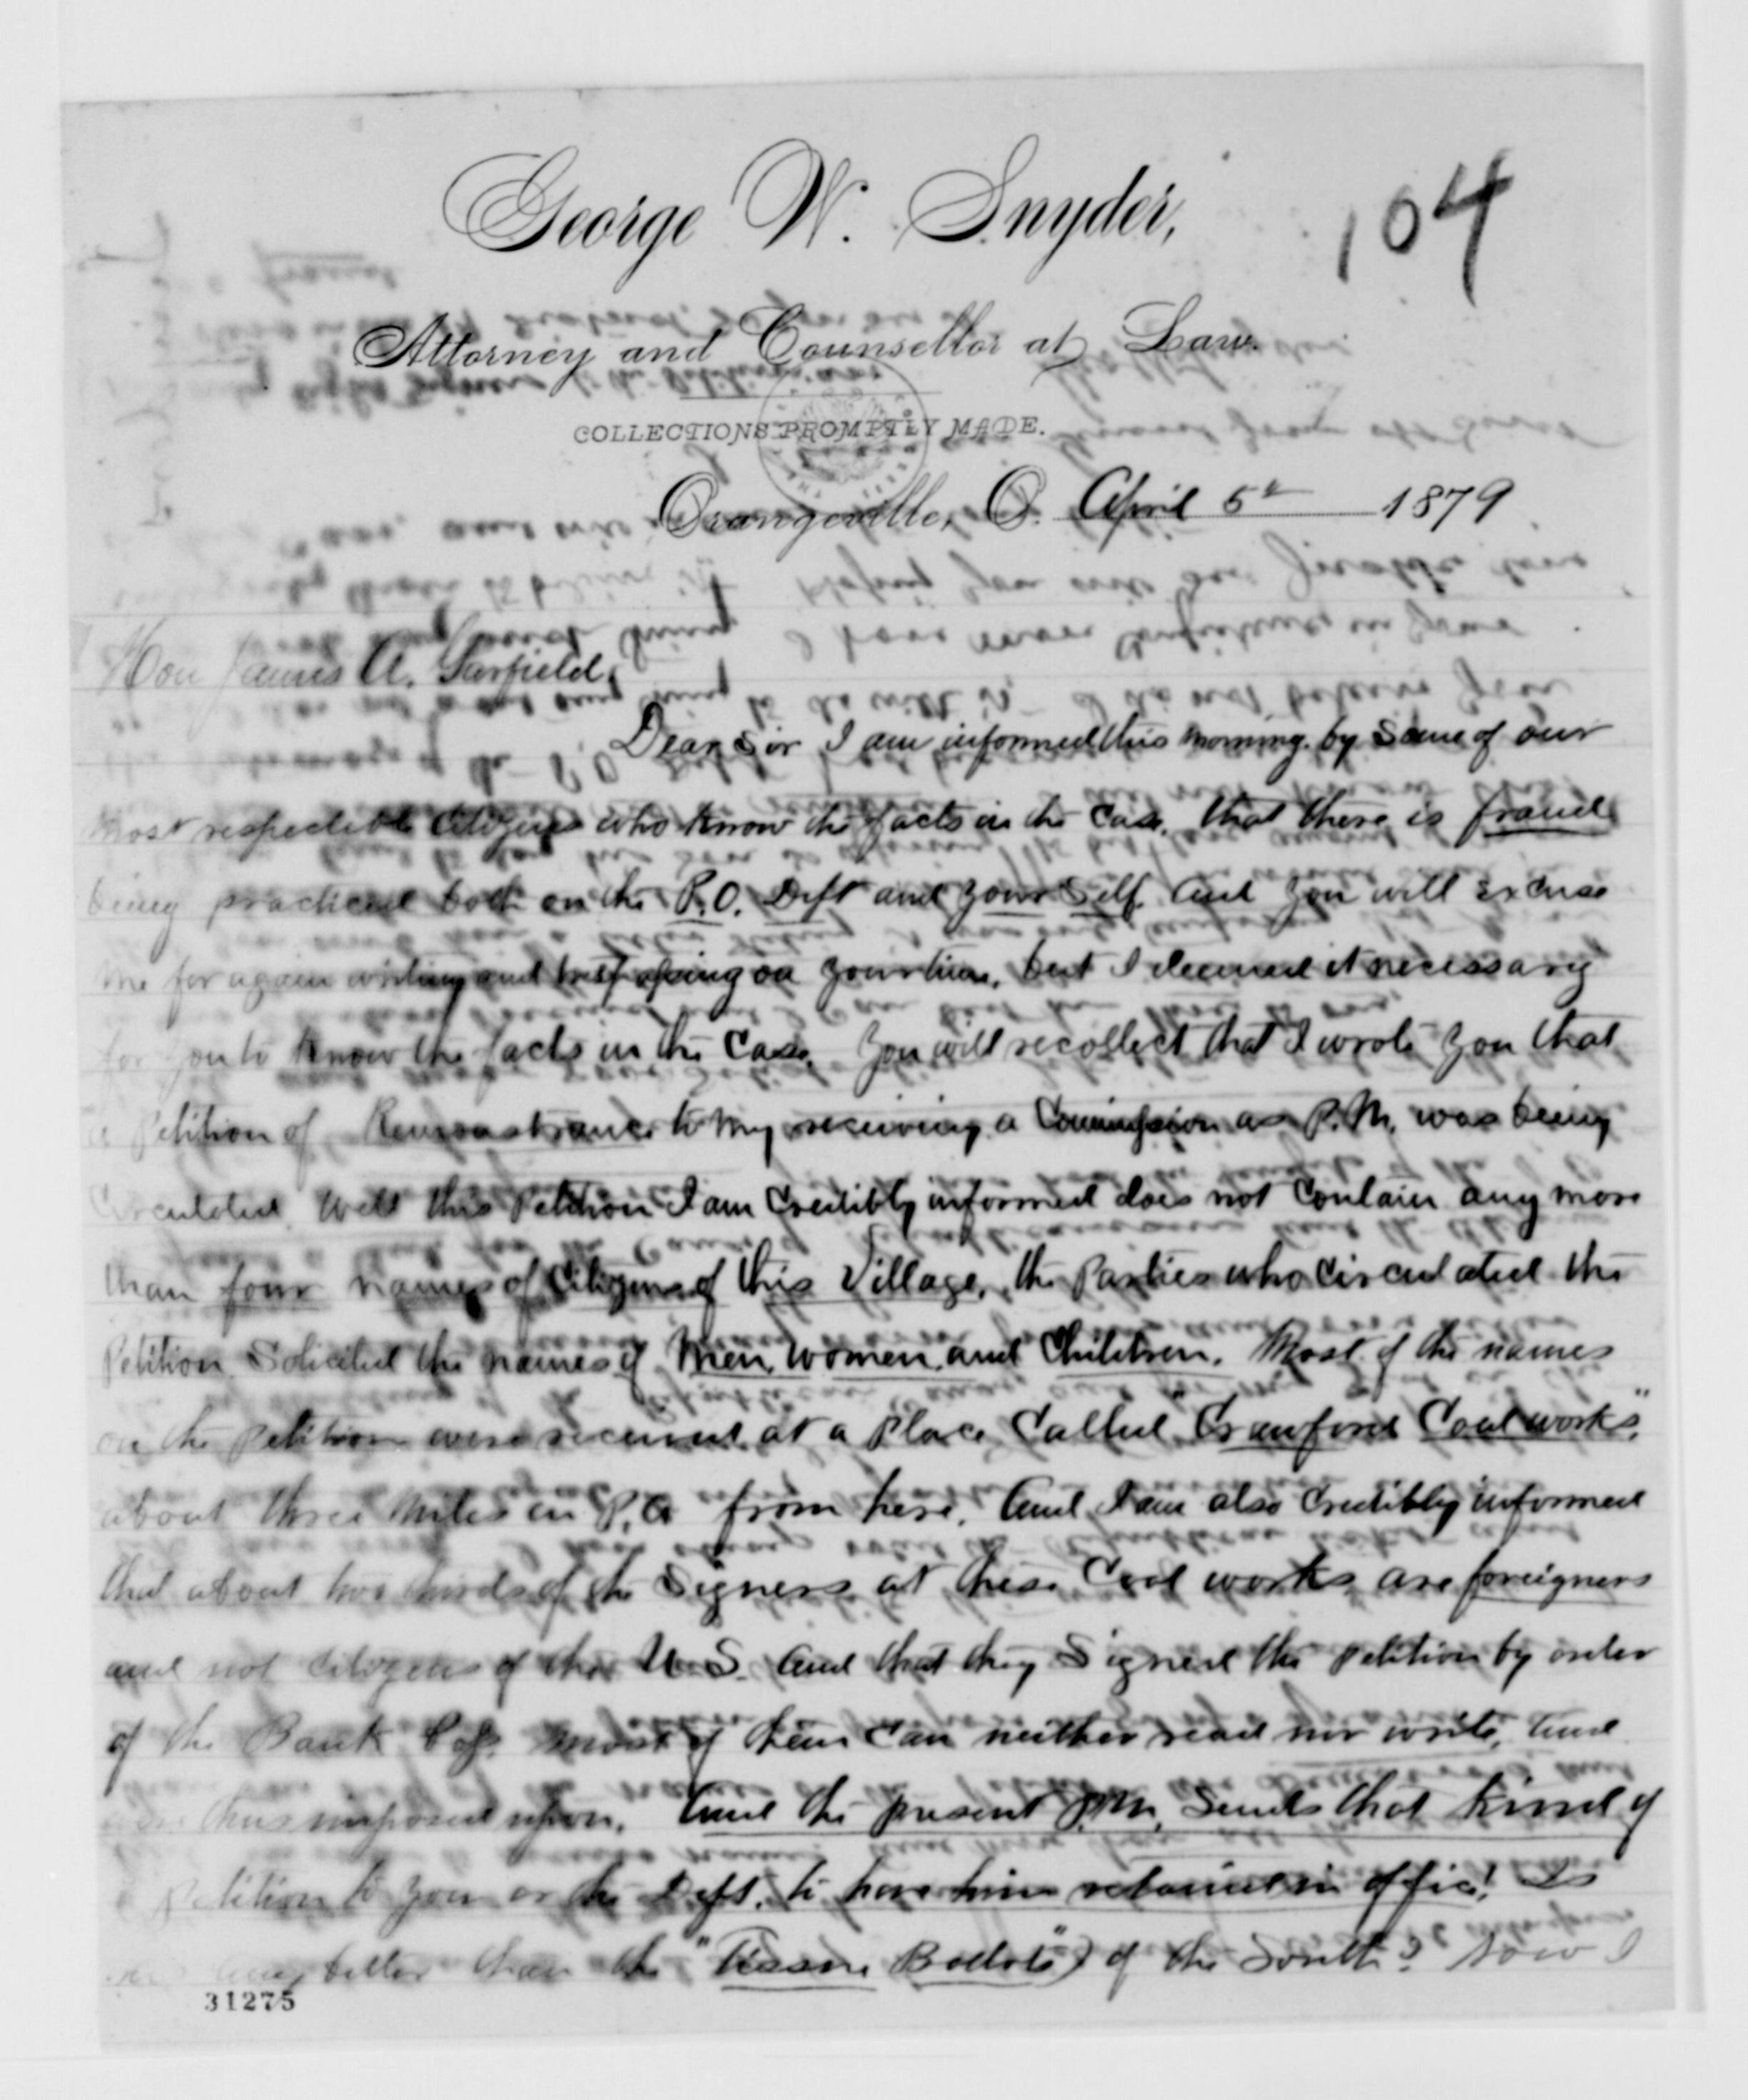 104
George W. Snyder,
Attorney and Counsellor at Law.
COLLECTIONS PROMPTLY MADE.
Orangeville, O. April 5th 1879
Hon James A. Garfield,
Dear Sir I am informed this morning by Some of our
most respectible Citizens who Know the facts in the Case, that there is fraud
being practiced both on the P.O. Dept and your Self and you will excuse
me for again writing and trespassing on your time, but I deemed it necessary
for you to Know the facts in the Case. You will recollect that I wrote you that
a Petition of Remonstrance to my receiving a Commission as P.M. was being
Circulated. Well this Petition I am Credibly informed does not Contain any more
than four names of Citizens of this Village, the Parties who Circulated the
Petition Solicited the names of Men, Women, and Children. Most of the names
on the Petition were received at a Place Called "Crawford Coal works",
about three miles in P.A from here. And I am also Credibly informed
that about two thirds of the Signers at these Coal works are foreigners
and not Citizens of the U.S. And that they Signed the Petition by order
of the Bank Most of them Can neither read nor write, and
are thus imposed upon. And the present P.M. Sends that Kind of
Petition to you or the Dept. to have him retained in office! Is
any better than the "Tissue Ballots" of the South? Now I
31275